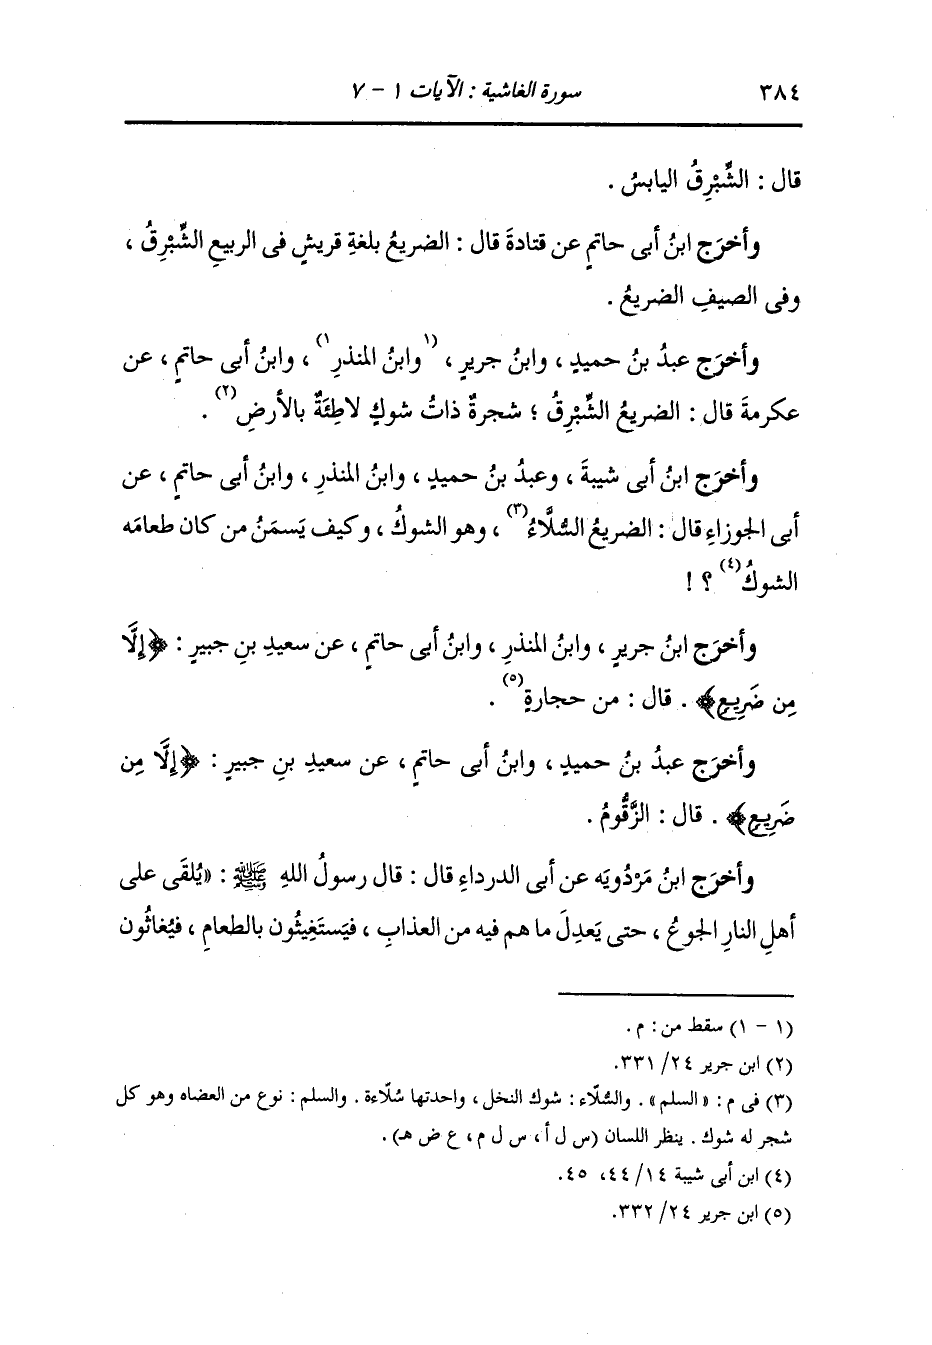 ٣٨٤ سورة الغاشية : الآيات ١ - ٧
قال : الشِّبْرِقُ اليابسُ .
وأخرَج ابنُ أبى حاتمٍ عن قتادةَ قال : الضريعُ بلغةِ قريشٍ فى الربيعِ الشِّبْرِقُ ،
وفى الصيفِ الضريعُ .
وأخرَج عبدُ بنُ حميدٍ ، وابنُ جريرٍ ، (١وابنُ المنذرِ١) ، وابنُ أبى حاتمٍ ، عن
عكرمةَ قال : الضريعُ الشِّبْرِقُ ؛ شجرةٌ ذاتُ شوكٍ لاطِئَةٌ بالأرضِ(٢) .
وأخرَج ابنُ أبى شيبةَ ، وعبدُ بنُ حميدٍ ، وابنُ المنذرِ ، وابنُ أبى حاتمٍ ، عن
أبى الجوزاءِ قال : الضريعُ السُّلَّاءُ(٣) ، وهو الشوكُ ، وكيف يَسمَنُ من كان طعامَه
الشوكُ(٤) ؟ !
وأخرَج ابنُ جريرٍ ، وابنُ المنذرِ ، وابنُ أبى حاتمٍ ، عن سعيدِ بنِ جبيرٍ : ﴿إِلَّا
مِن ضَرِيعٍ﴾ . قال : من حجارةٍ(٥) .
وأخرَج عبدُ بنُ حميدٍ ، وابنُ أبى حاتمٍ ، عن سعيدِ بنِ جبيرٍ : ﴿إِلَّا مِن
ضَرِيعٍ﴾ . قال : الزَّقُّومُ .
وأخرَج ابنُ مَرْدُويَه عن أبى الدرداءِ قال : قال رسولُ اللهِ ﷺ : «يُلقَى على
أهلِ النارِ الجوعُ ، حتى يَعدِلَ ما هم فيه من العذابِ ، فيَستَغِيثُون بالطعامِ ، فيُغاثُون
(١ - ١) سقط من : م .
(٢) ابن جرير ٢٤/ ٣٣١.
(٣) فى م : «السلم» . والسُّلّاء : شوك النخل ، واحدتها سُلّاءة . والسلم : نوع من العضاه وهو كل
شجر له شوك . ينظر اللسان (س ل أ، س ل م، ع ض هـ) .
(٤) ابن أبى شيبة ١٤/ ٤٤، ٤٥.
(٥) ابن جرير ٢٤/ ٣٣٢.